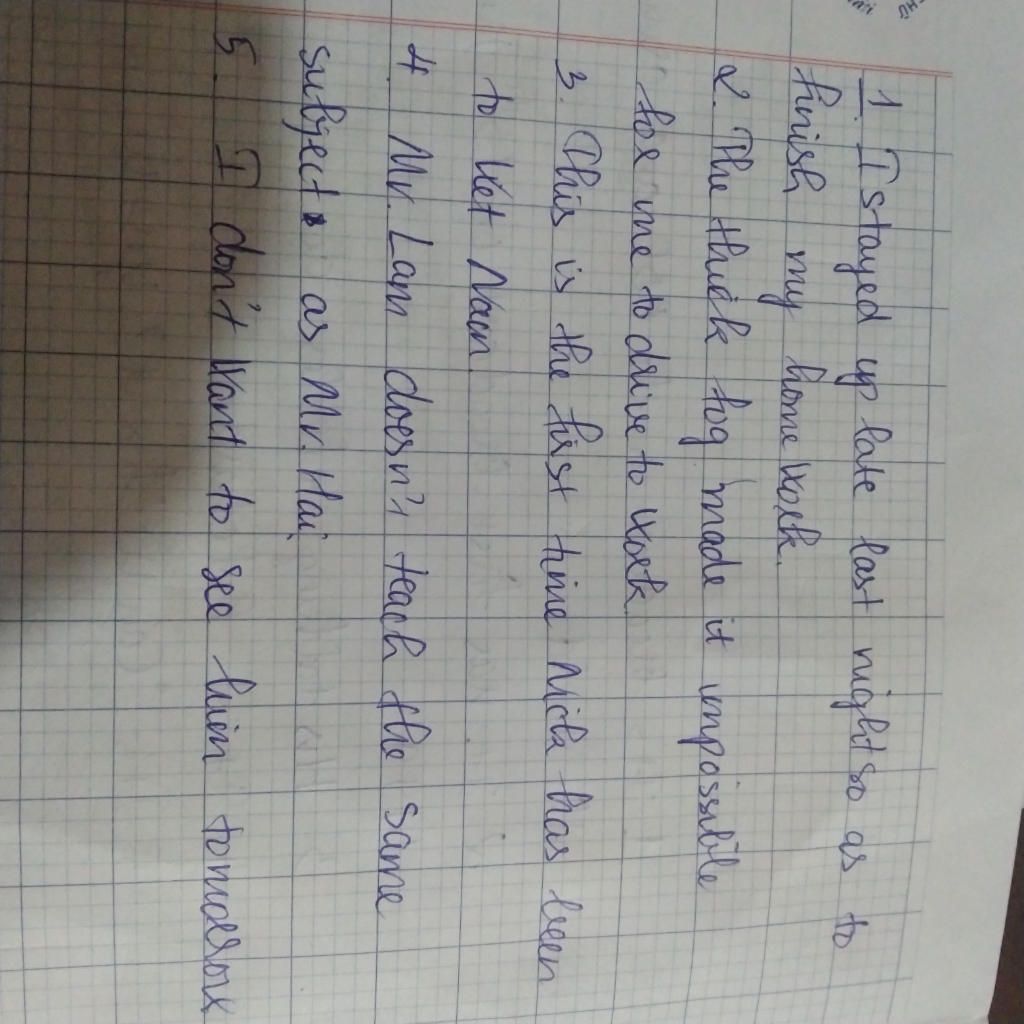 1. I stayed up late last night so as to
finish my home work.
2. The thick fog made it impossible
for me to drive to work
3. This is the first time Nick has been
to Viet Nam.
4 Mr. Lam doesn't teach the same
subject as Mr. Hai.
5. I don't want to see him tomorrow